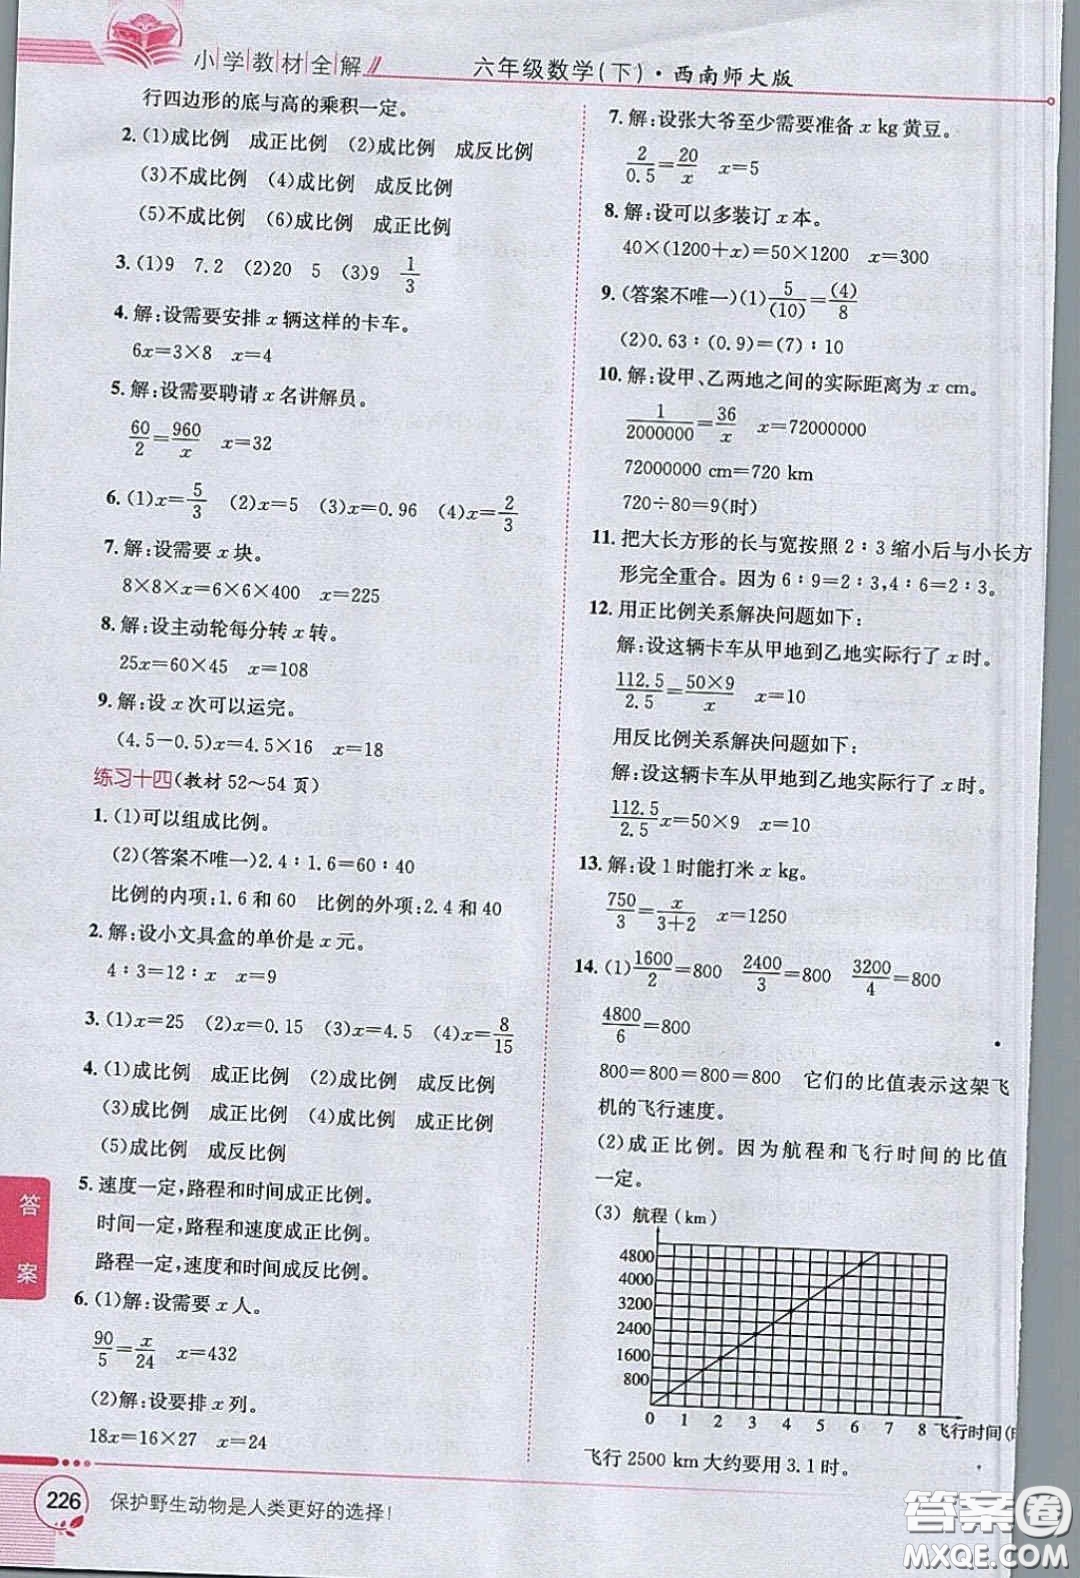 小学教材全解
六年级数学(下)·西南师大版
行四边形的底与高的乘积一定。
2. (1)成比例 成正比例 (2)成比例 成反比例
(3)不成比例 (4)成比例 成反比例
(5)不成比例 (6)成比例 成正比例
3. (1)9 7.2 (2)20 5 (3)9 1/3
4. 解:设需要安排 x 辆这样的卡车。
6x=3×8 x=4
5. 解:设需要聘请 x 名讲解员。
60/2=960/x x=32
6. (1)x=5/3 (2)x=5 (3)x=0.96 (4)x=2/3
7. 解:设需要 x 块。
8×8×x=6×6×400 x=225
8. 解:设主动轮每分转 x 转。
25x=60×45 x=108
9. 解:设 x 次可以运完。
(4.5-0.5)x=4.5×16 x=18
练习十四(教材 52～54 页)
1. (1)可以组成比例。
(2)(答案不唯一)2.4∶1.6=60∶40
比例的内项:1.6 和 60 比例的外项:2.4 和 40
2. 解:设小文具盒的单价是 x 元。
4∶3=12∶x x=9
3. (1)x=25 (2)x=0.15 (3)x=4.5 (4)x=8/15
4. (1)成比例 成正比例 (2)成比例 成反比例
(3)成比例 成正比例 (4)成比例 成正比例
(5)成比例 成反比例
5. 速度一定,路程和时间成正比例。
时间一定,路程和速度成正比例。
路程一定,速度和时间成反比例。
6. (1)解:设需要 x 人。
90/5=x/24 x=432
(2)解:设要排 x 列。
18x=16×27 x=24
7. 解:设张大爷至少需要准备 x kg 黄豆。
2/0.5=20/x x=5
8. 解:设可以多装订 x 本。
40×(1200+x)=50×1200 x=300
9. (答案不唯一)(1)5/(10)=(4)/8
(2)0.63∶(0.9)=(7)∶10
10. 解:设甲、乙两地之间的实际距离为 x cm。
1/2000000=36/x x=72000000
72000000 cm=720 km
720÷80=9(时)
11. 把大长方形的长与宽按照 2∶3 缩小后与小长方
形完全重合。因为 6∶9=2∶3,4∶6=2∶3。
12. 用正比例关系解决问题如下:
解:设这辆卡车从甲地到乙地实际行了 x 时。
112.5/2.5=50×9/x x=10
用反比例关系解决问题如下:
解:设这辆卡车从甲地到乙地实际行了 x 时。
112.5/2.5x=50×9 x=10
13. 解:设 1 时能打米 x kg。
750/3=x/3+2 x=1250
14. (1)1600/2=800 2400/3=800 3200/4=800
4800/6=800
800=800=800=800 它们的比值表示这架飞
机的飞行速度。
(2)成正比例。因为航程和飞行时间的比值
一定。
(3) 航程(km)
4800
4000
3200
2400
1600
800
0 1 2 3 4 5 6 7 8 飞行时间(时
飞行 2500 km 大约要用 3.1 时。
答
案
226
保护野生动物是人类更好的选择!
答案圈
MXQE.COM